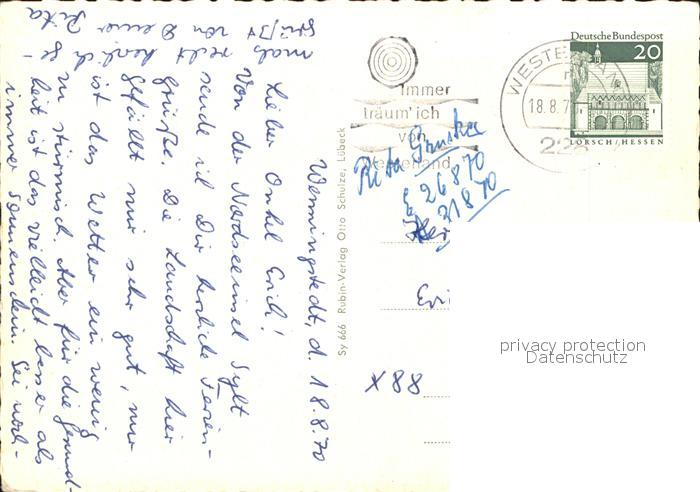 Wenningstedt, d. 18.8.70
Lieber Onkel Erich!
Von der Nordseeinsel Sylt
sende ich Dir herzliche Ferien-
grüße. Die Landschaft hier
gefällt mir sehr gut, nur
ist das Wetter ein wenig
zu stürmisch. Aber für die Gesund-
heit ist das vielleicht besser als
immer Sonnenschein. Sei noch-
mals recht herzlich ge-
grüßt von Deiner Rita
Sy 666 Rubin-Verlag Otto Schulze, Lübeck
Immer
träum' ich
von
WESTERLAND
18.8.70
Deutsche Bundespost
20
LORSCH/HESSEN
Rita
E 26870
31870
X 88
privacy protection
Datenschutz